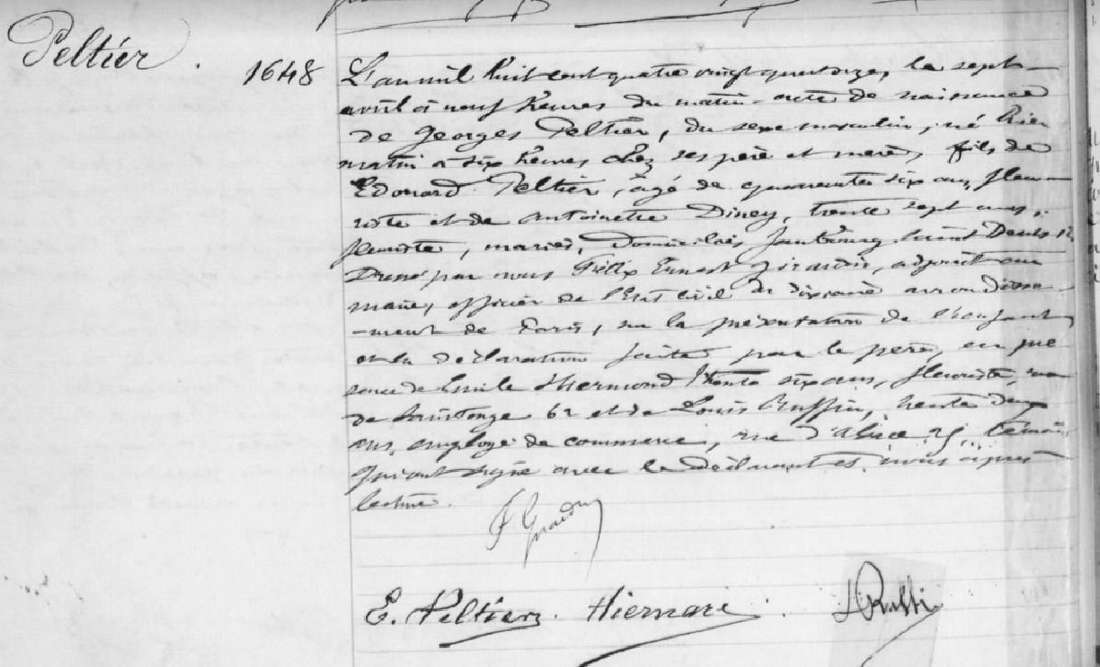 Peltier.
1648
L'an mil huit cent quatre vingt quatorze, le sept
avril à neuf heures du matin acte de naissance
de Georges Peltier, du sexe masculin, né hier
matin à six heures chez ses père et mère, fils de
Edouard Peltier, âgé de quarante six ans, fleu-
riste et de Antoinette Diney, trente sept ans,
fleuriste, mariés, domiciliés faubourg Saint Denis
Dressé par nous Félix Ernest Girardin, adjoint au
maire, officier de l'Etat civil du dixième arrondisse
-ment de Paris, sur la présentation de l'enfant
et la déclaration faite par le père, en pré
sence de Emile trente six ans, fleuriste, rue
de Saintonge 62 et de Louis Ruffin, trente deux
ans, employé de commerce, rue d'Alsace témoins
qui ont signé avec le déclarant et nous après
lecture.
E. Peltier. Hiernard